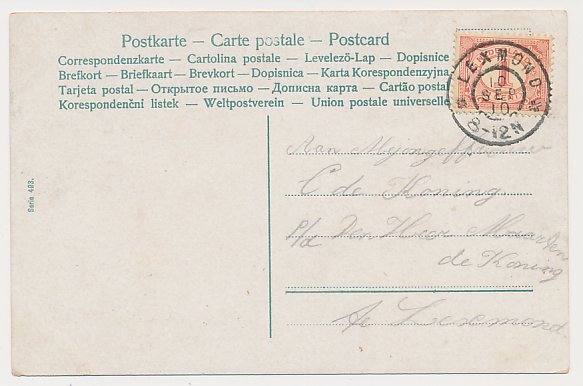 Postkarte – Carte postale – Postcard
Correspondenzkarte – Cartolina postale – Levelező-Lap – Dopisnice
Brefkort – Briefkaart – Brevkort – Dopisnica – Karta Korespondenzyjna
Tarjeta postal – Открытое письмо – Дописна карта – Cartão postal
Korespondenční listek – Weltpostverein – Union postale universelle
LEXMOND
10
SEP
10
8-12N
Aan
C de Koning
p/a Den Heer
de Koning
Te Lexmond
Serie 493.